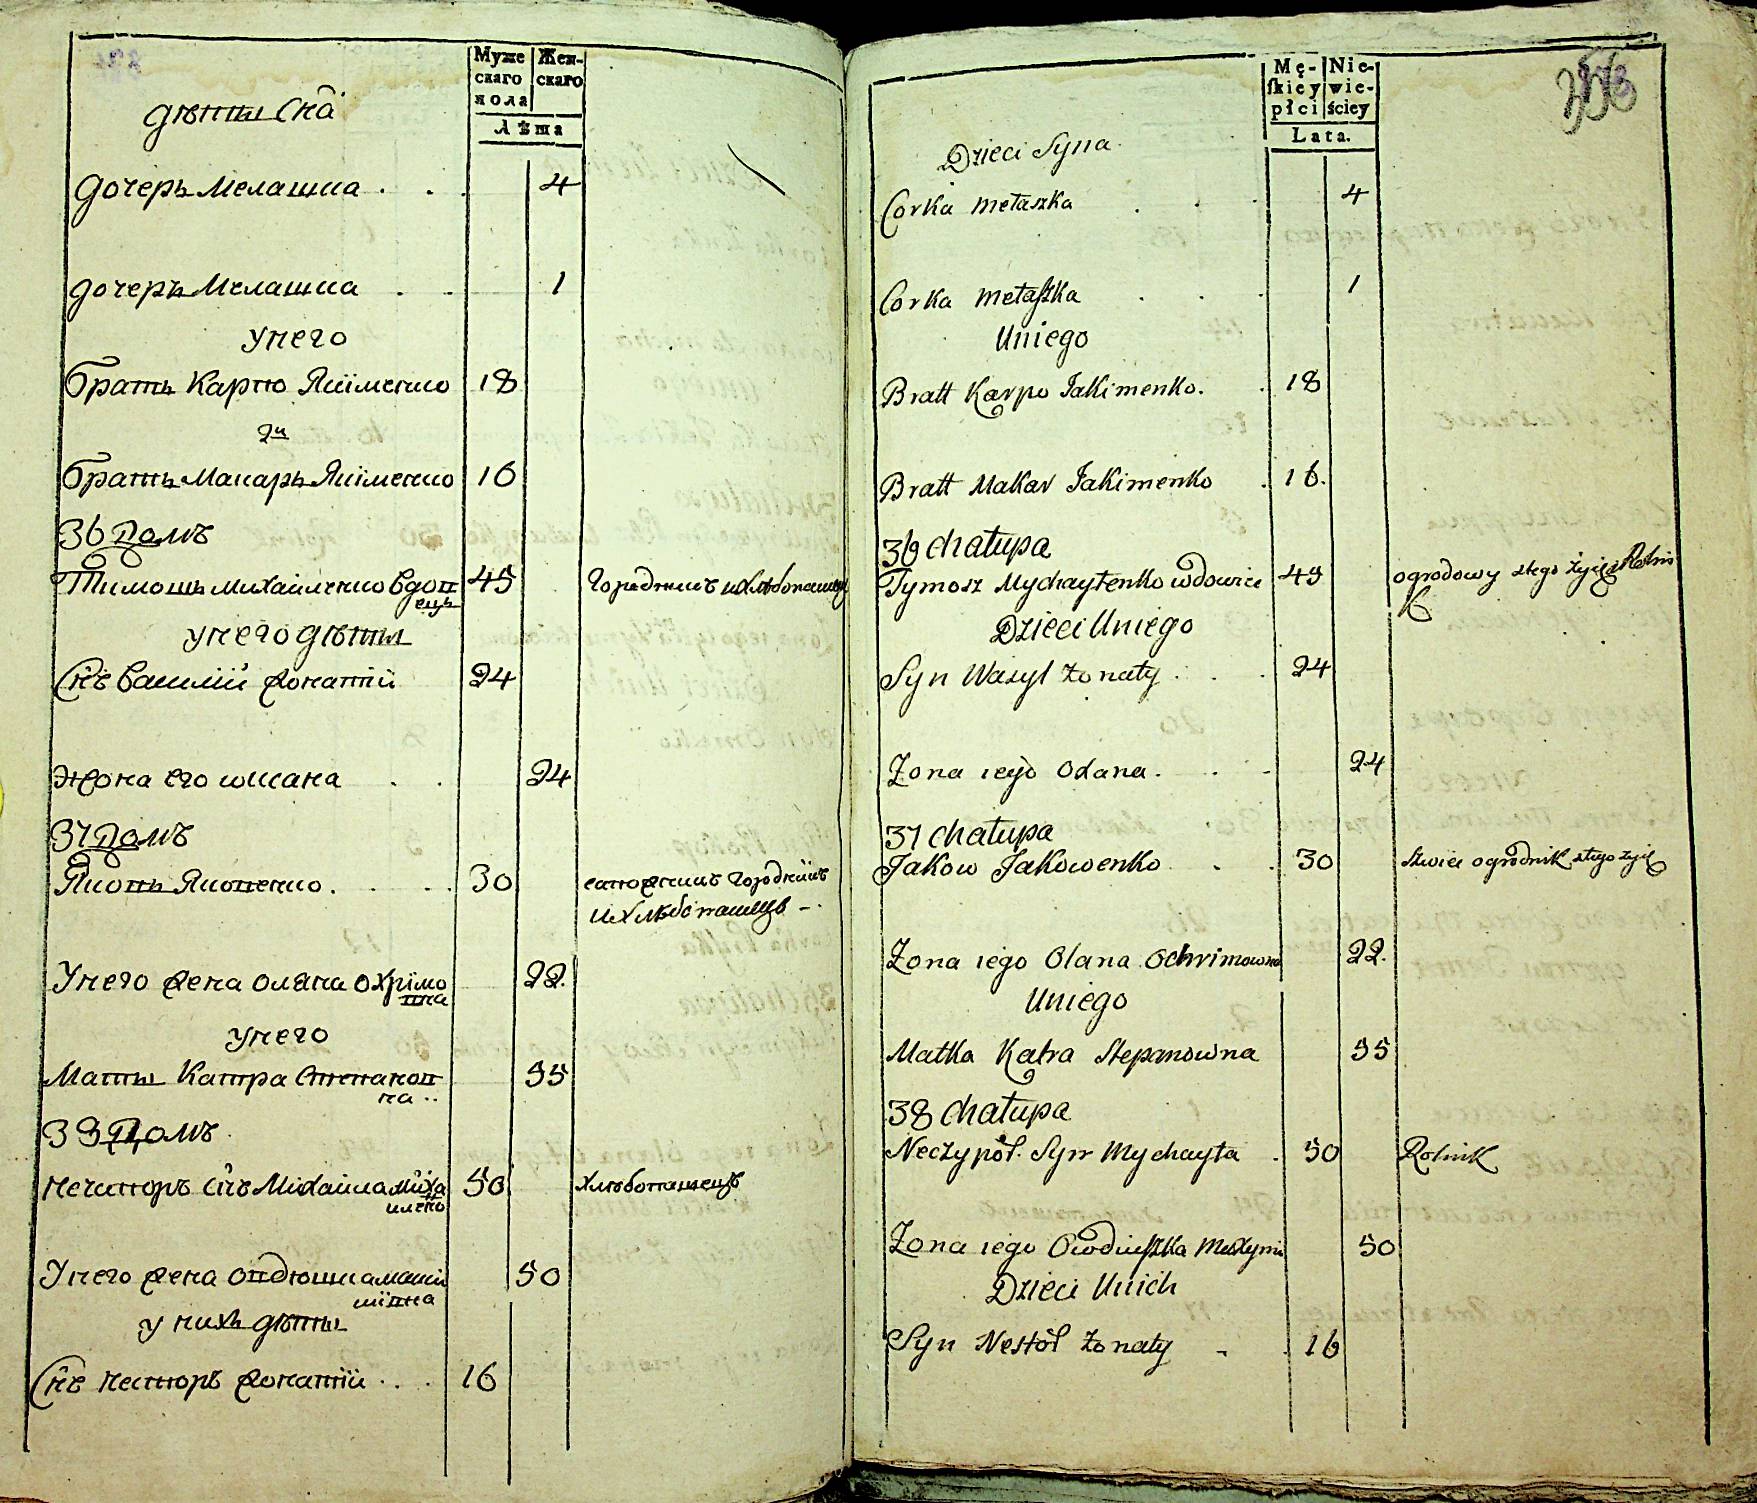 Муже
скаго
пола
Жен-
скаго
Лѣта
дѣти Сна
дочерь Мелашка . . . 4
дочерь Мелашка . . 1
унего
братъ Карпо Якименко 18
2й
братъ Макаръ Якименко 16
36 Домъ
Тимошъ Михайленко вдов
ецъ 45 Городникъ и хлѣбопашец
унего дѣти
Снъ Василий жонатій 24
жона его оксана . . 24
37 Домъ
Яковъ Яковенко . . . . 30 сапожникъ городникъ
и хлѣбопашецъ -.
Унего жена Оляна Охрімо
вна 22.
унего
Мать Катра Степанов
на .. 55
38 Домъ.
нечипоръ снъ Михайла миха
йленко 50 хлѣбопашецъ
Унего жена Овдюшка макси
мівна 50
у нихъ дѣти
Снъ нестторъ жонатій . . . 16
Mę-
skiey
płci
Nie-
wie-
ściey
Lata.
Dzieci Syna
Corka Mełaszka . . . 4
Corka Mełaszka . . . 1
Uniego
Bratt Karpo Jakimenko. . 18
Bratt Makar Jakimenko . 16.
36 chałupa
Tymosz Mychayłenko wdowiec 45 ogrodowy stego życie Rolni
k
Dzieci Uniego
Syn Wasyl żonaty . . . 24
Zona iego Oxana . . . 24
37 chałupa
Jakow Jakowenko . . 30 Szwiec ogrodnik stego życie
Zona iego Olana Ochrimowna 22.
Uniego
Matka Katra Stepanowna 55
38 chałupa
Neczypor Syn Mychayła . 50 Rolnik
Zona iego Owdiuszka Maxymi 50
Dzieci Unich
Syn Nestor żonaty - . 16